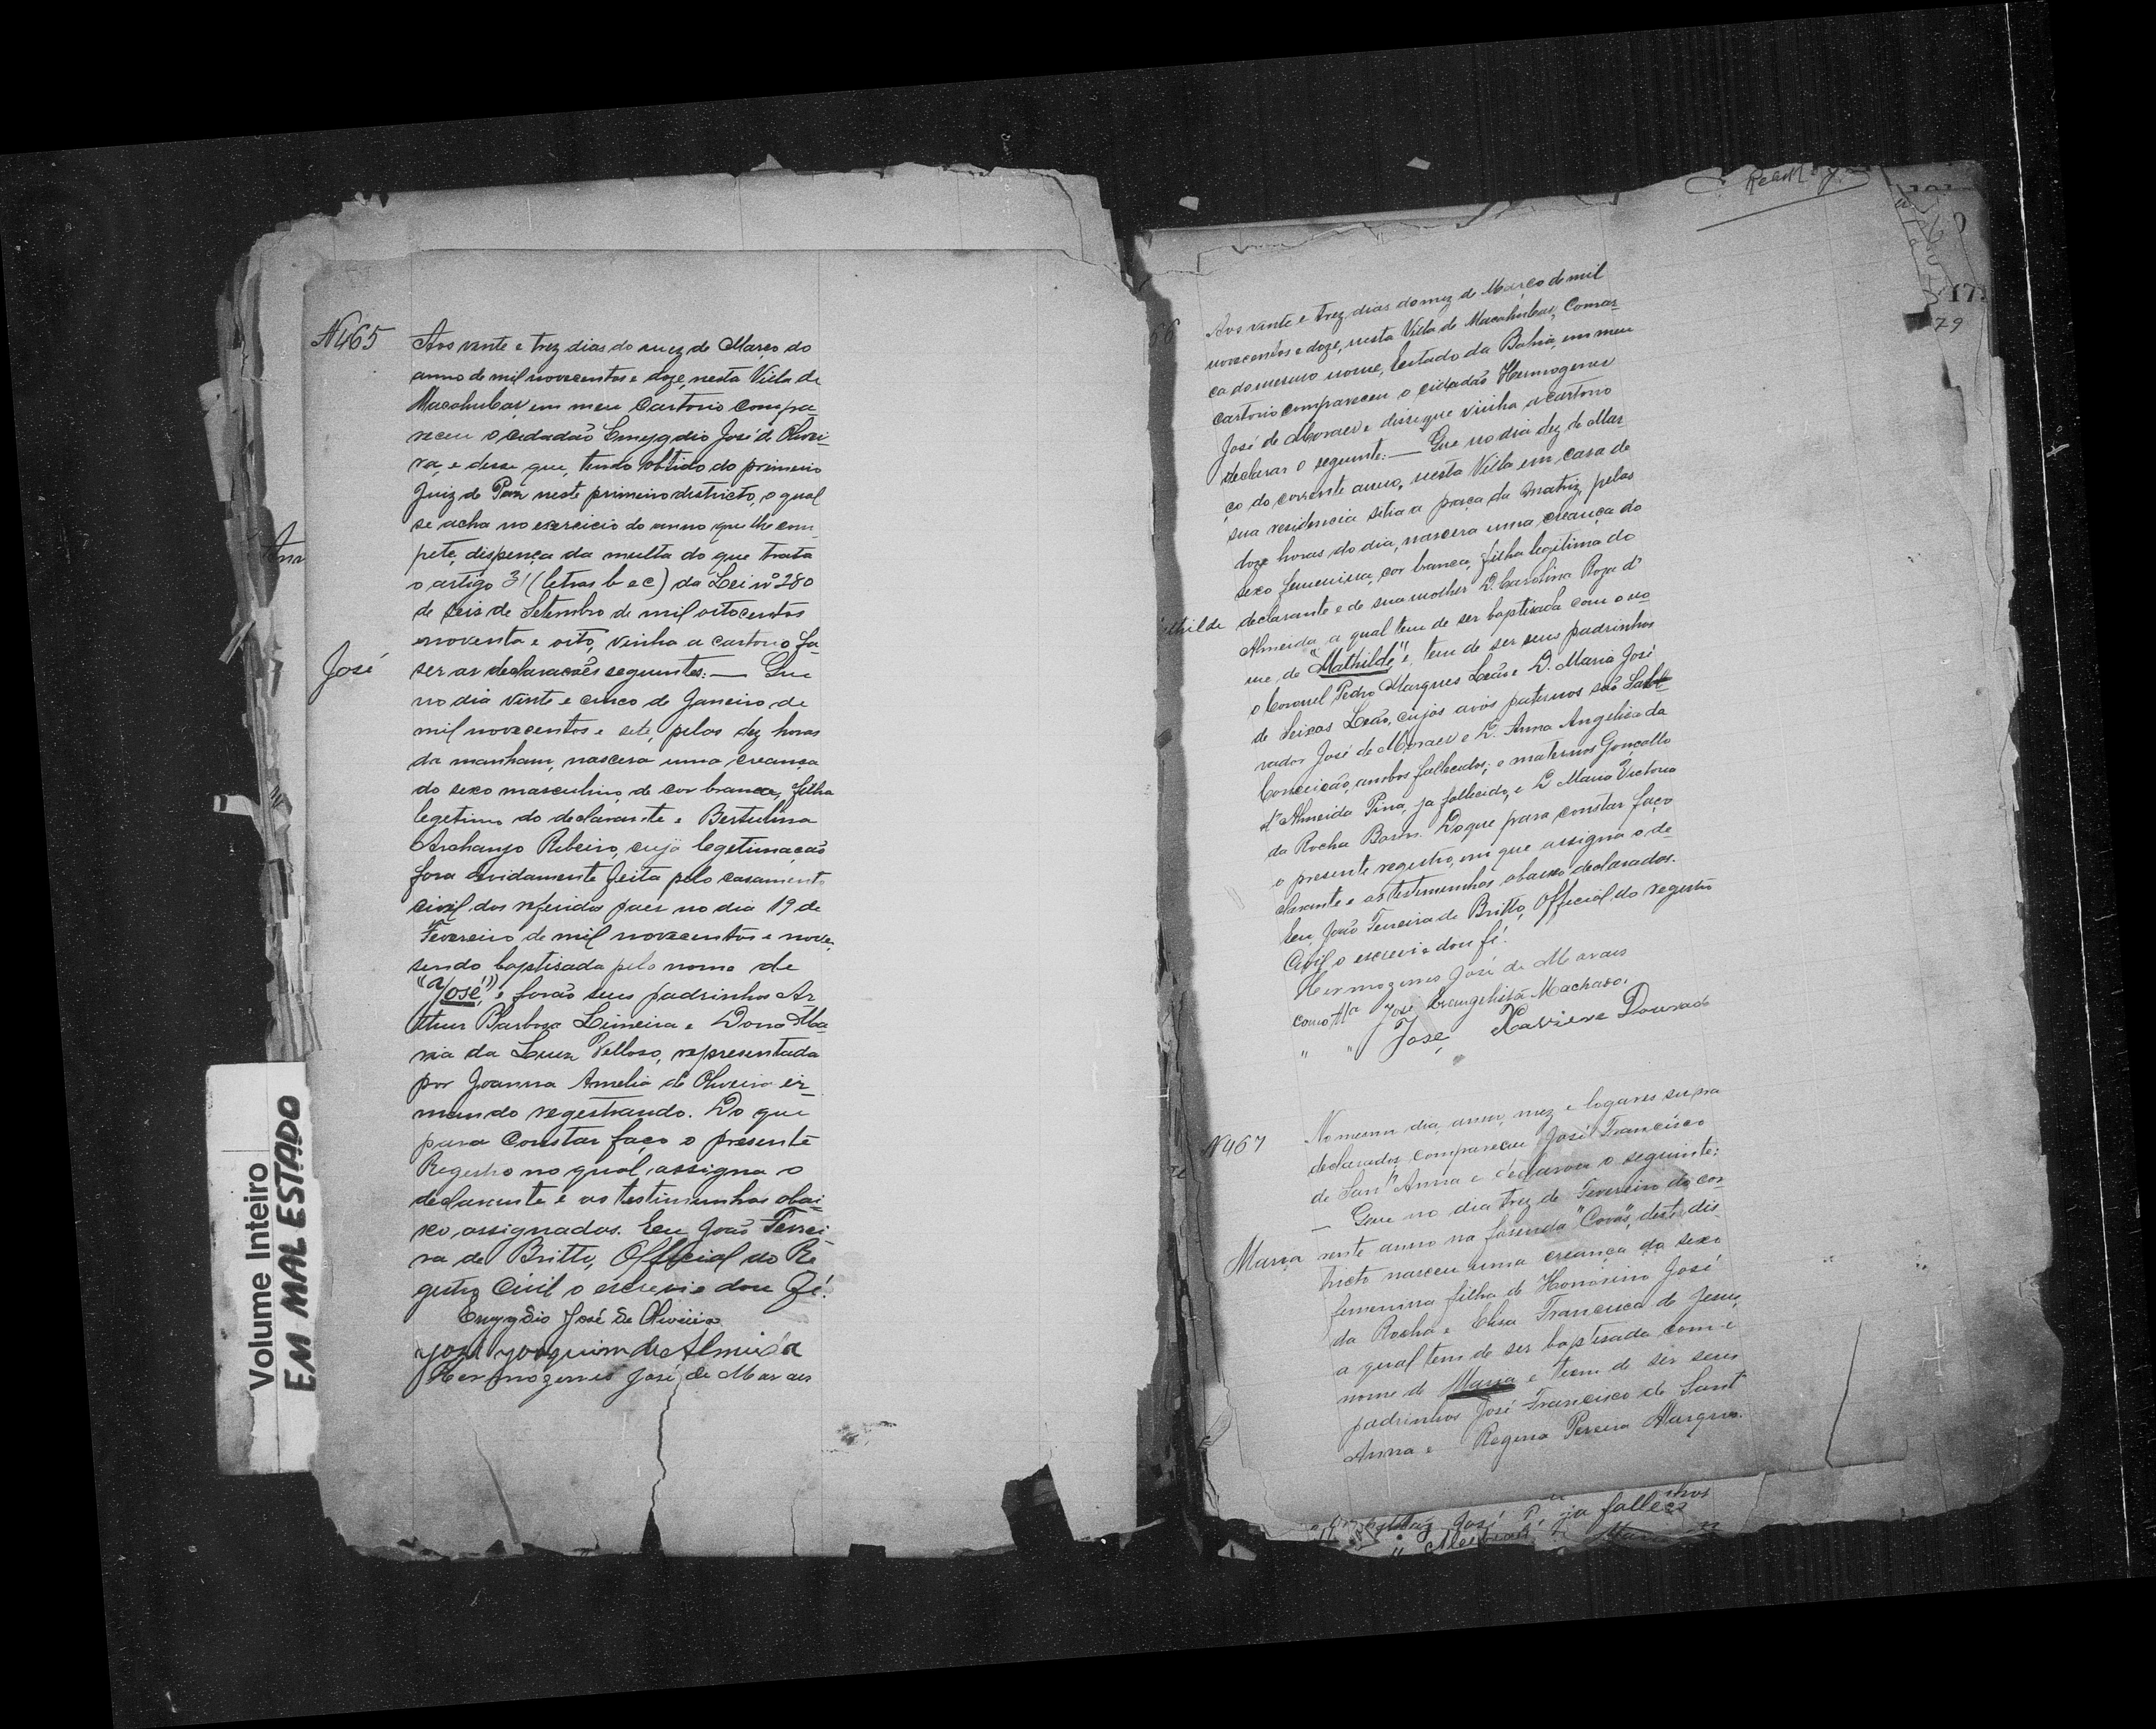 Nº 465
Aos vinte e trez dias do mez de Março do
anno de mil novecentos e doze, nesta Villa de
Macahubas em meu Cartorio compa-
receu o cidadão Emygdio José d' Olivei-
ra, e desse que, tendo obtido do primeiro
Juiz de Paz neste primeiro districto, o qual
se acha no exercicio do anno que lhe com-
pete, dispença da multa do que trata
o artigo 31 (letras b e c) da Lei nº 280
de seis de Setembro de mil oitocentos
e noventa e oito, vinha a cartorio fa-
José
ser as declaracões seguintes: — Que
no dia vinte e cinco de Janeiro de
mil novecentos e sete, pelas dez horas
da manham, nascera uma creança
do sexo masculino, de cor branca, filha
legitima do declarante e Bertulina
Archanjo Ribeiro, cuja legetimação
fora devidamente feita pelo casamento
civil dos referidos paes no dia 19 de
Fevereiro de mil novecentos e nove,
sendo baptisada pelo nome de
"José", e forão seus padrinhos Ar-
thur Barbosa Limeira e Dona Ma-
ria da Luuz Velloso, representada
por Joanna Amelia de Oliveira ir-
man do regestrando. Do que
para Constar faço o presente
Regestro no qual, assigna o
declarante e as testimunhas abai-
xo, assignadas. Eu João Ferrei-
ra de Britto, Official do Re-
gistro Civil o escrevi e dou Fé.
Emygdio José de Oliveira
José Joaquim de Almeida
Hermogenes José de Moraes
Volume Inteiro
EM MAL ESTADO
17
79
66
Aos vinte e trez dias do mez de Março de mil
novecentos e doze, nesta Villa de Macahubas, Comar-
ca do mesmo nome, Estado da Bahia, em meu
cartorio compareceu o cidadão Hermogenes
José de Moraes e disse que vinha a cartorio
declarar o seguinte: — Que no dia dez de Mar-
ço do corrente anno, nesta Villa em casa de
sua residencia sita a praça da Matriz, pelas
doze horas do dia, nascera uma creança do
sexo femenina, cor branca, filha legitima do
thilde
declarante e de sua molher D. Carolina Roza d'
Almeida, a qual tem de ser baptisada com o no-
me, de "Mathilde" e, tem de ser seus padrinhos
o Coronel Pedro Marques Leão e D. Maria José
de Seixas Leão, cujos avós paternos são Salv
vador José de Moraes e D. Anna Angelica da
Conceição, ambos fallecidos; e maternos Gonçallo
d' Almeida Pina, ja fallecido, e D. Maria Victoria
da Rocha Doque para constar faço
o presente regestro, em que assigna o de-
clarante e as testemunhas abaixo declaradas.
Eu, João Ferreira de Britto, Official do registro
Civil o escrevi e dou fé.
Hermogenes José de Moraes
como ttª José Evangelista Machado.
" " José Xaviere Dourado
Nº 467
No mesmo dia, anno, mez e logares supra
declarados compareceu José Francisco
de Sant'Anna e declarou o seguinte:
— Que no dia trez de Fevereiro do cor-
Maria
rente anno na fasenda "Covas", deste dis-
tricto nasceu uma creança do sexo
femenina filha de Honorino José
da Rocha e Elisa Francisca de Jesus,
a qual tem de ser baptisada com o
nome de Maria e tem de ser seus
padrinhos José Francisco de Sant'
Anna e Regina Pereira Marques.
José ja fallec